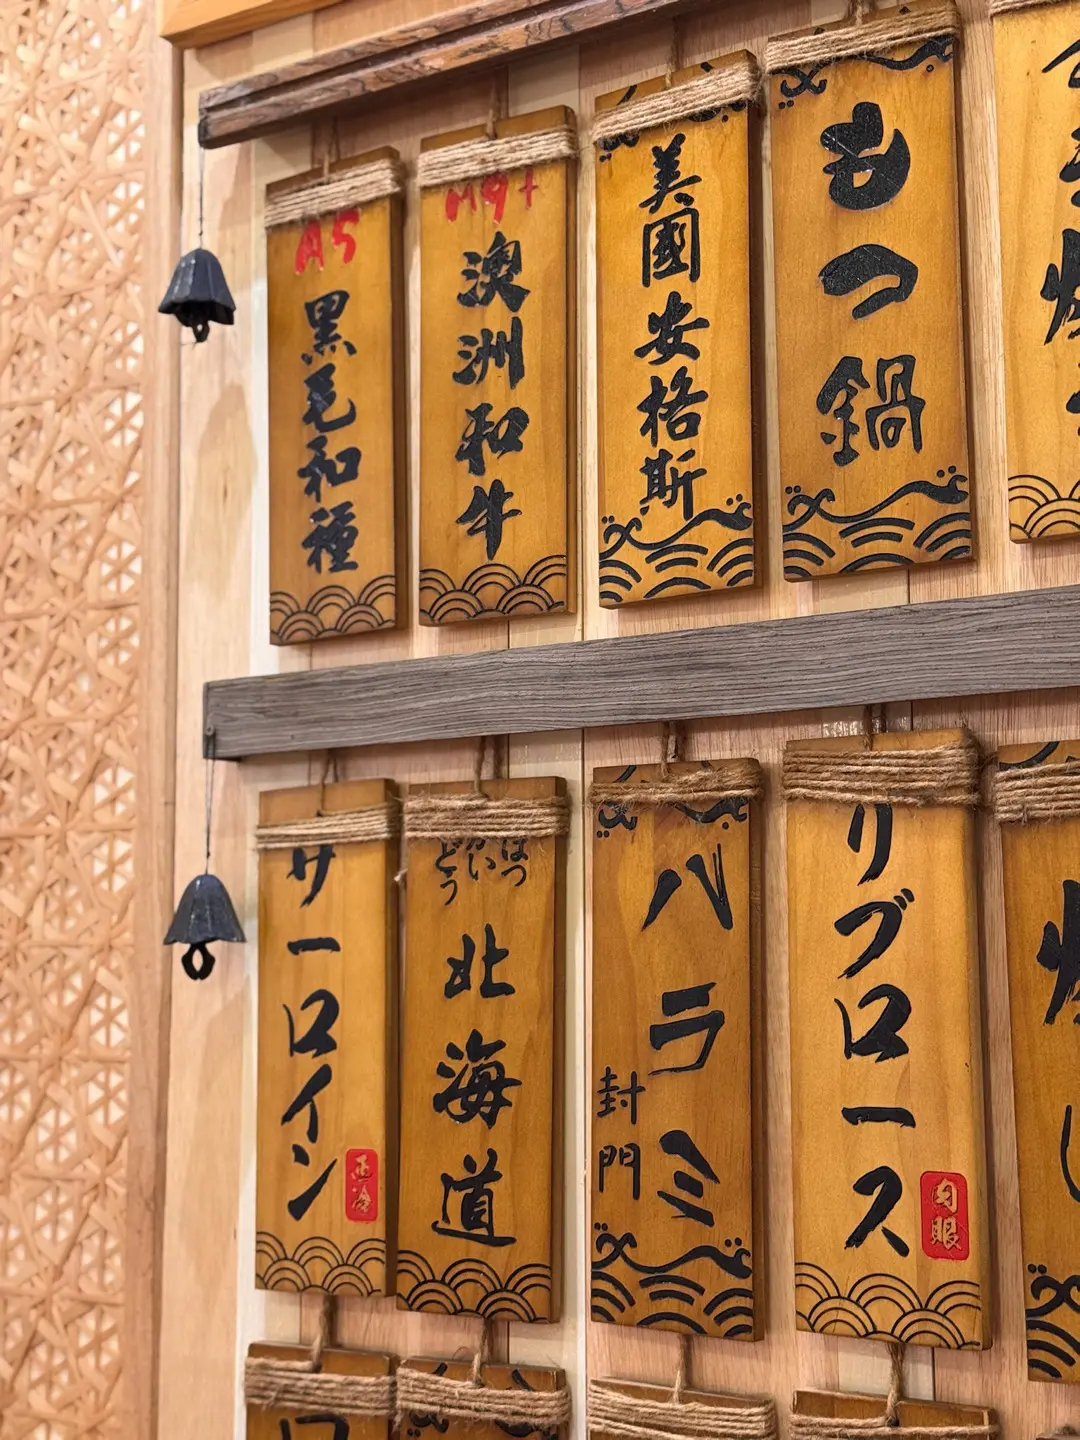 A5
黒毛和種
M9+
澳洲和牛
美國安格斯
もつ鍋
サーロイン
西冷
ほっ
かい
どう
北海道
ハラミ
封門
リブロース
肉眼